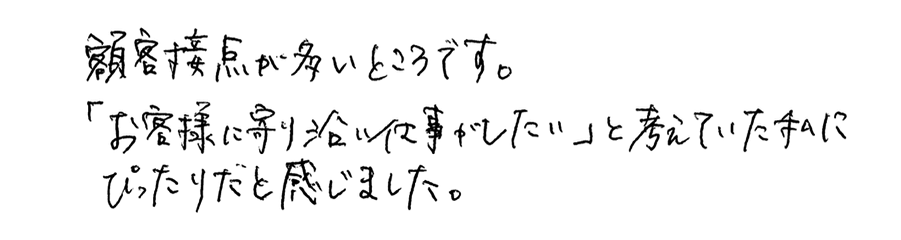 顧客接点が多いところです。
「お客様に寄り沿い仕事がしたい」と考えていた私に
ぴったりだと感じました。